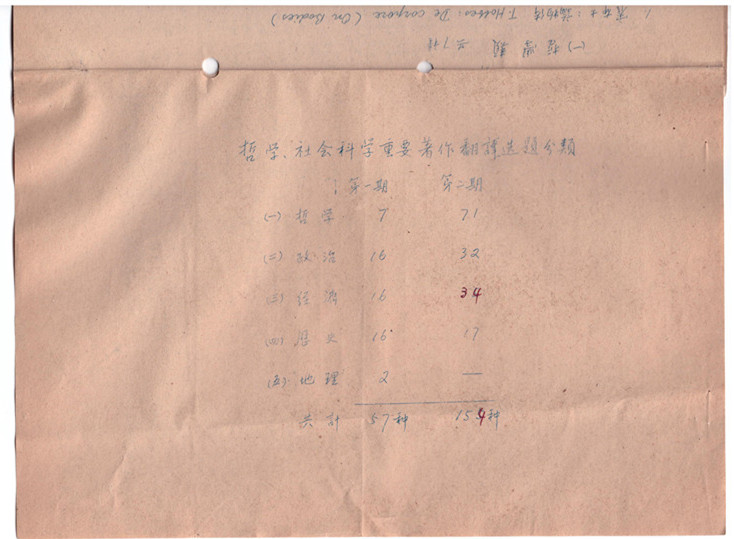 哲学、社会科学重要著作翻譯选题分類
第一期 第二期
(一) 哲学 7 71
(二) 政治 16 32
(三) 经济 16 34
(四) 历史 16 17
(五) 地理 2 —
共计 57种 154种
(一) 哲學類 共7种
1. T. Hobbes: De corpore (On Bodies)